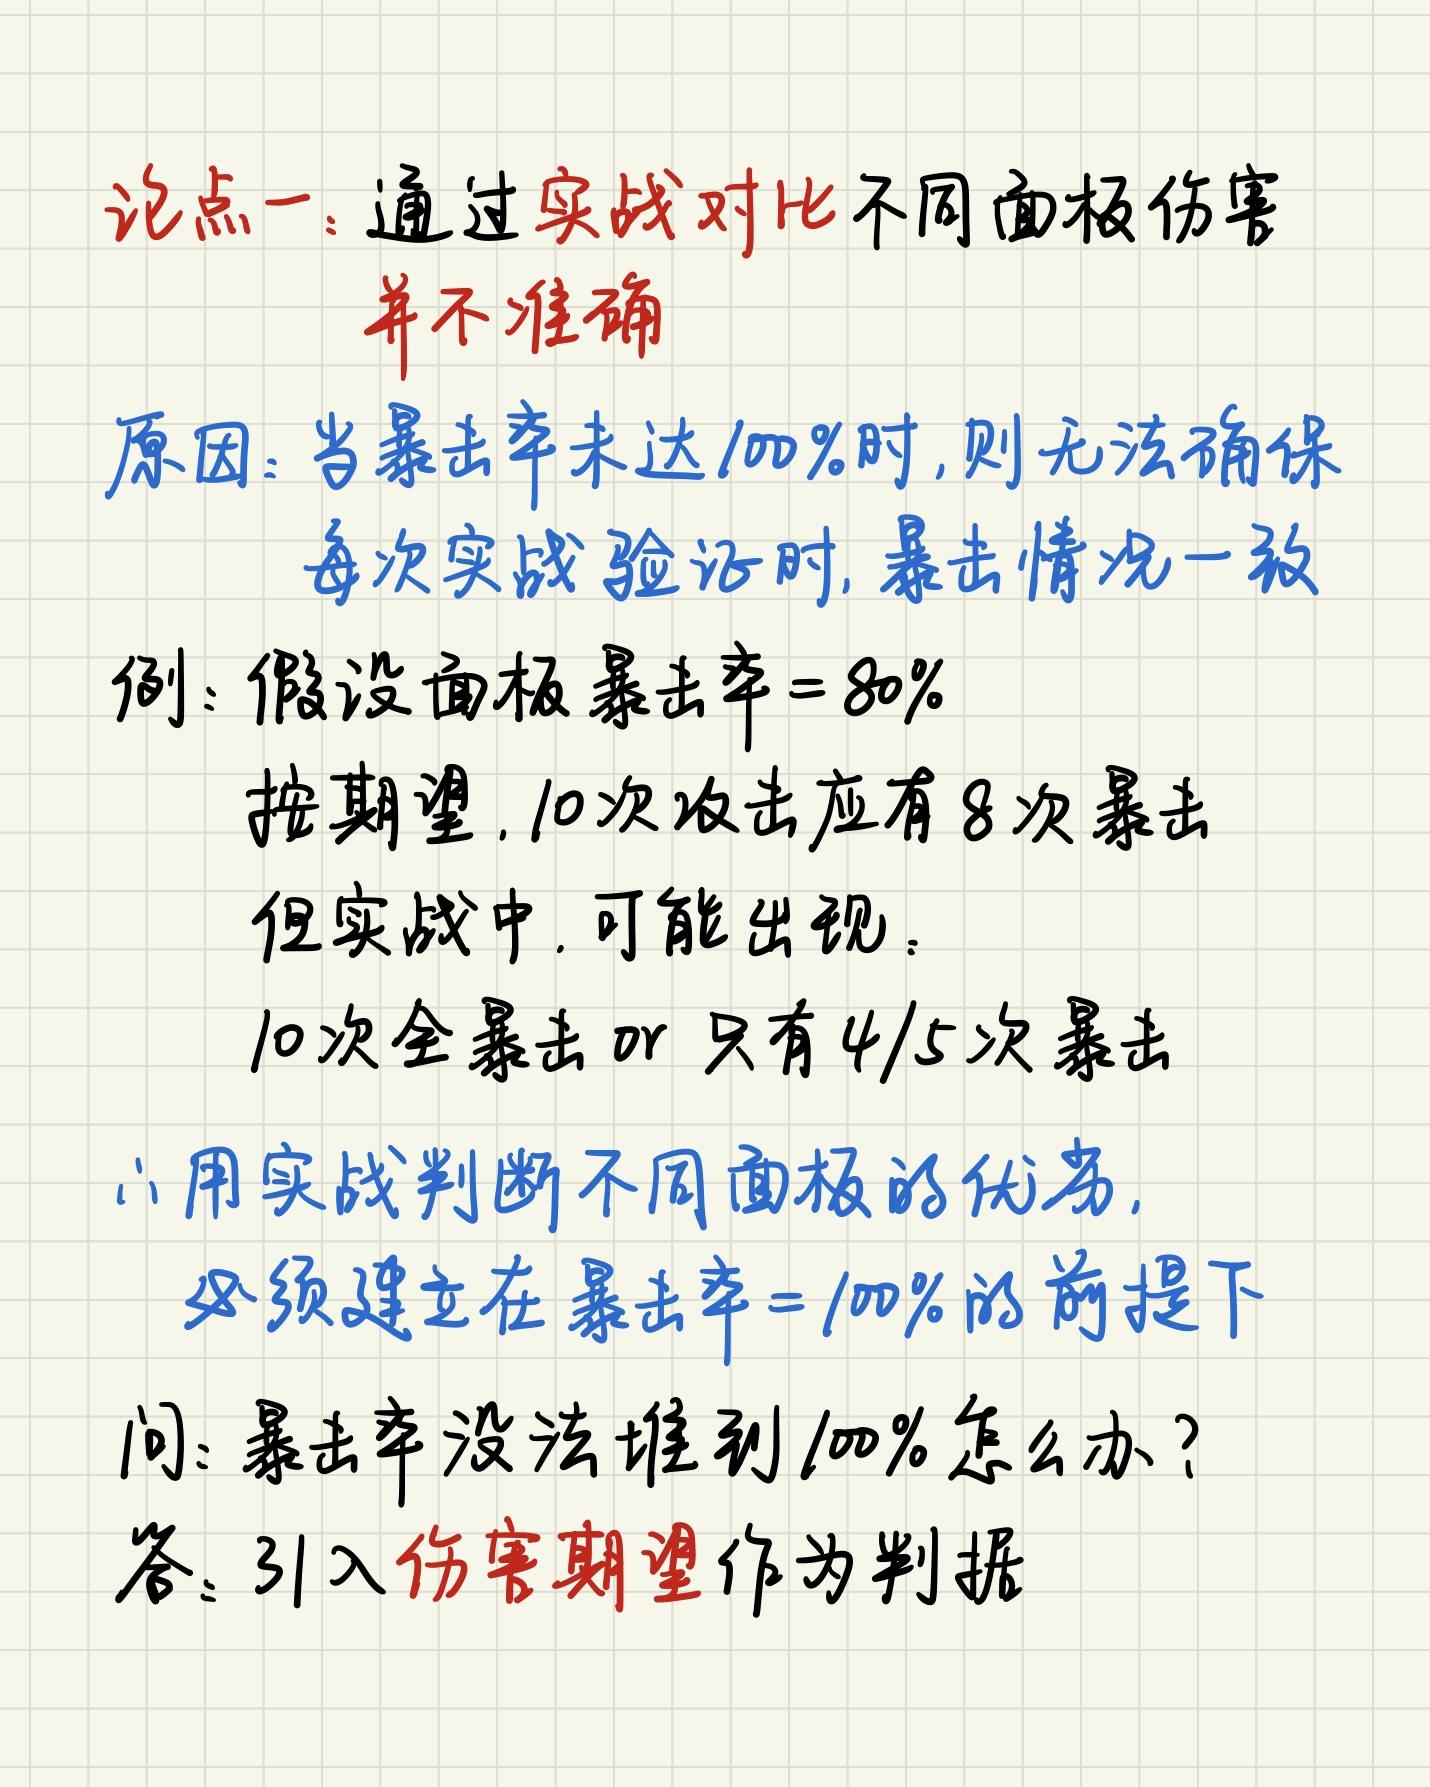 论点一：通过实战对比不同面板伤害
并不准确
原因：当暴击率未达100%时，则无法确保
每次实战验证时，暴击情况一致
例：假设面板暴击率=80%
按期望，10次攻击应有8次暴击
但实战中，可能出现：
10次全暴击 or 只有4/5次暴击
∴用实战判断不同面板的优劣，
必须建立在暴击率=100%的前提下
问：暴击率没法堆到100%怎么办？
答：引入伤害期望作为判据